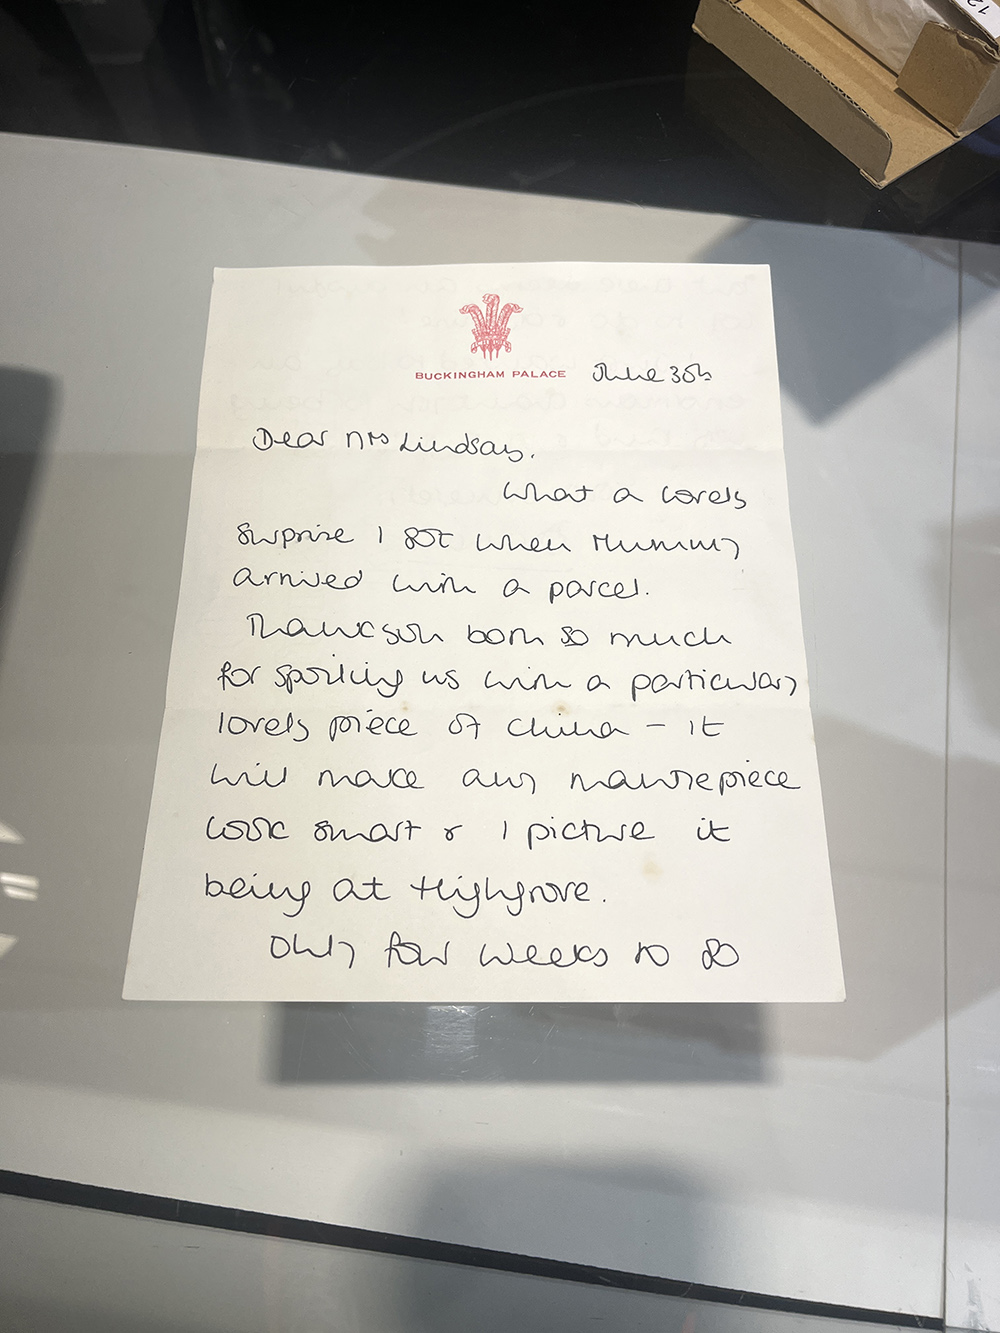 12
BUCKINGHAM PALACE
June 30th
Dear Mrs Lindsay,
What a lovely
surprise I got when Mummy
arrived with a parcel.
Thank you both so much
for spoiling us with a particularly
lovely piece of china – it
will make any mantlepiece
look smart & I picture it
being at Highgrove.
Only four weeks to go